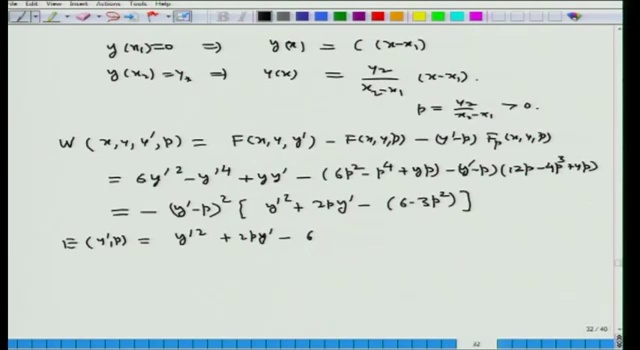 File Edit View Insert Actions Tools Help
y(x₁)=0 ⇒ y(x) = C (x-x₁)
y(x₂)=y₂ ⇒ y(x) = y₂/(x₂-x₁) (x-x₁).
p = y₂/(x₂-x₁) > 0.
W (x, y, y', p) = F(x, y, y') - F(x, y, p) - (y'-p) Fₚ(x, y, p)
= 6y'² - y'⁴ + yy' - (6p² - p⁴ + yp) - (y'-p)(12p-4p³+yp)
= - (y'-p)² [ y'² + 2py' - (6-3p²) ]
E (y', p) = y'² + 2py' - 6
32 / 40
62